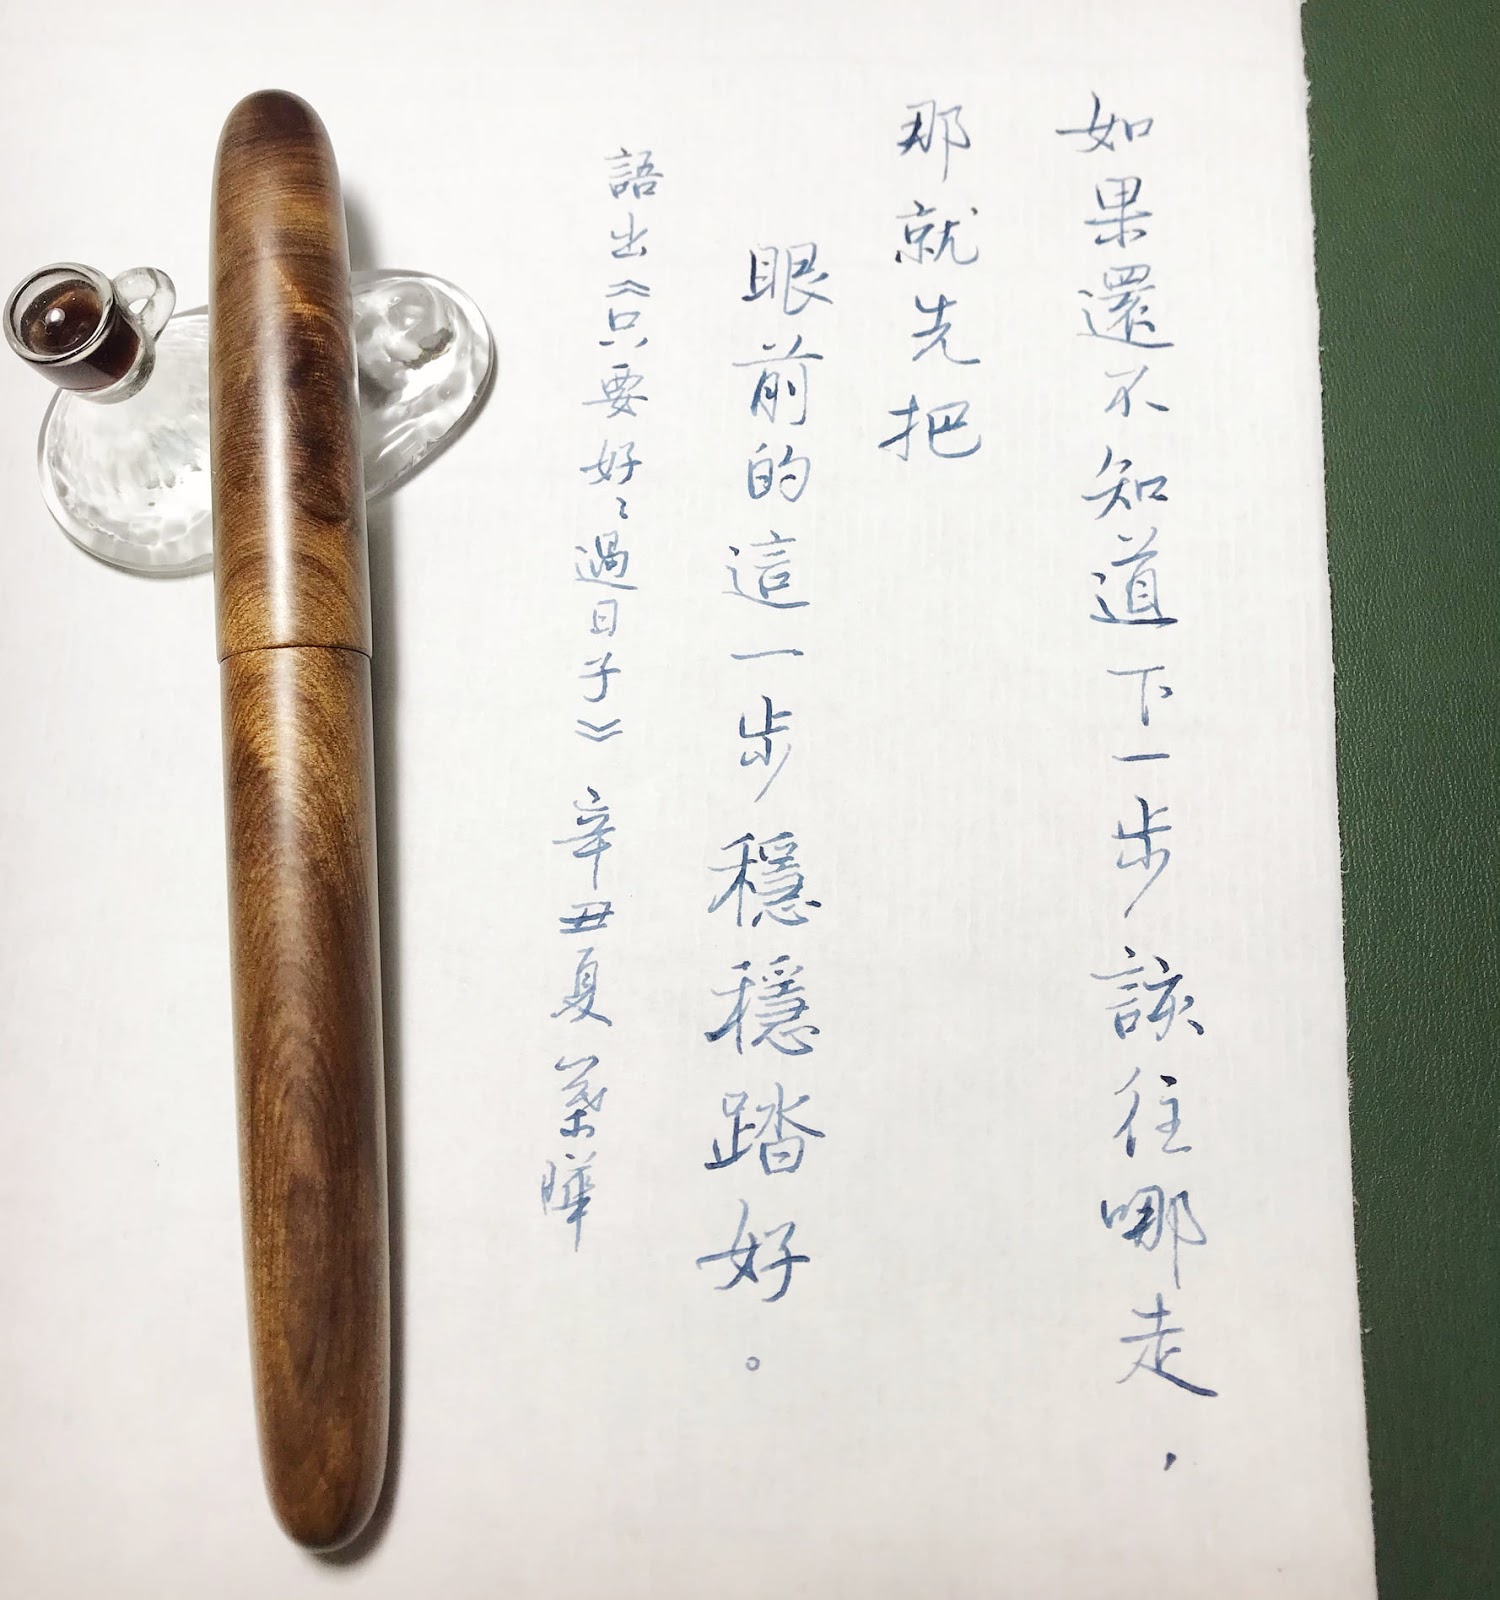 如果還不知道下一步該往哪走，
那就先把
眼前的這一步穩穩踏好。
語出《只要好〻過日子》辛丑夏 葉曄